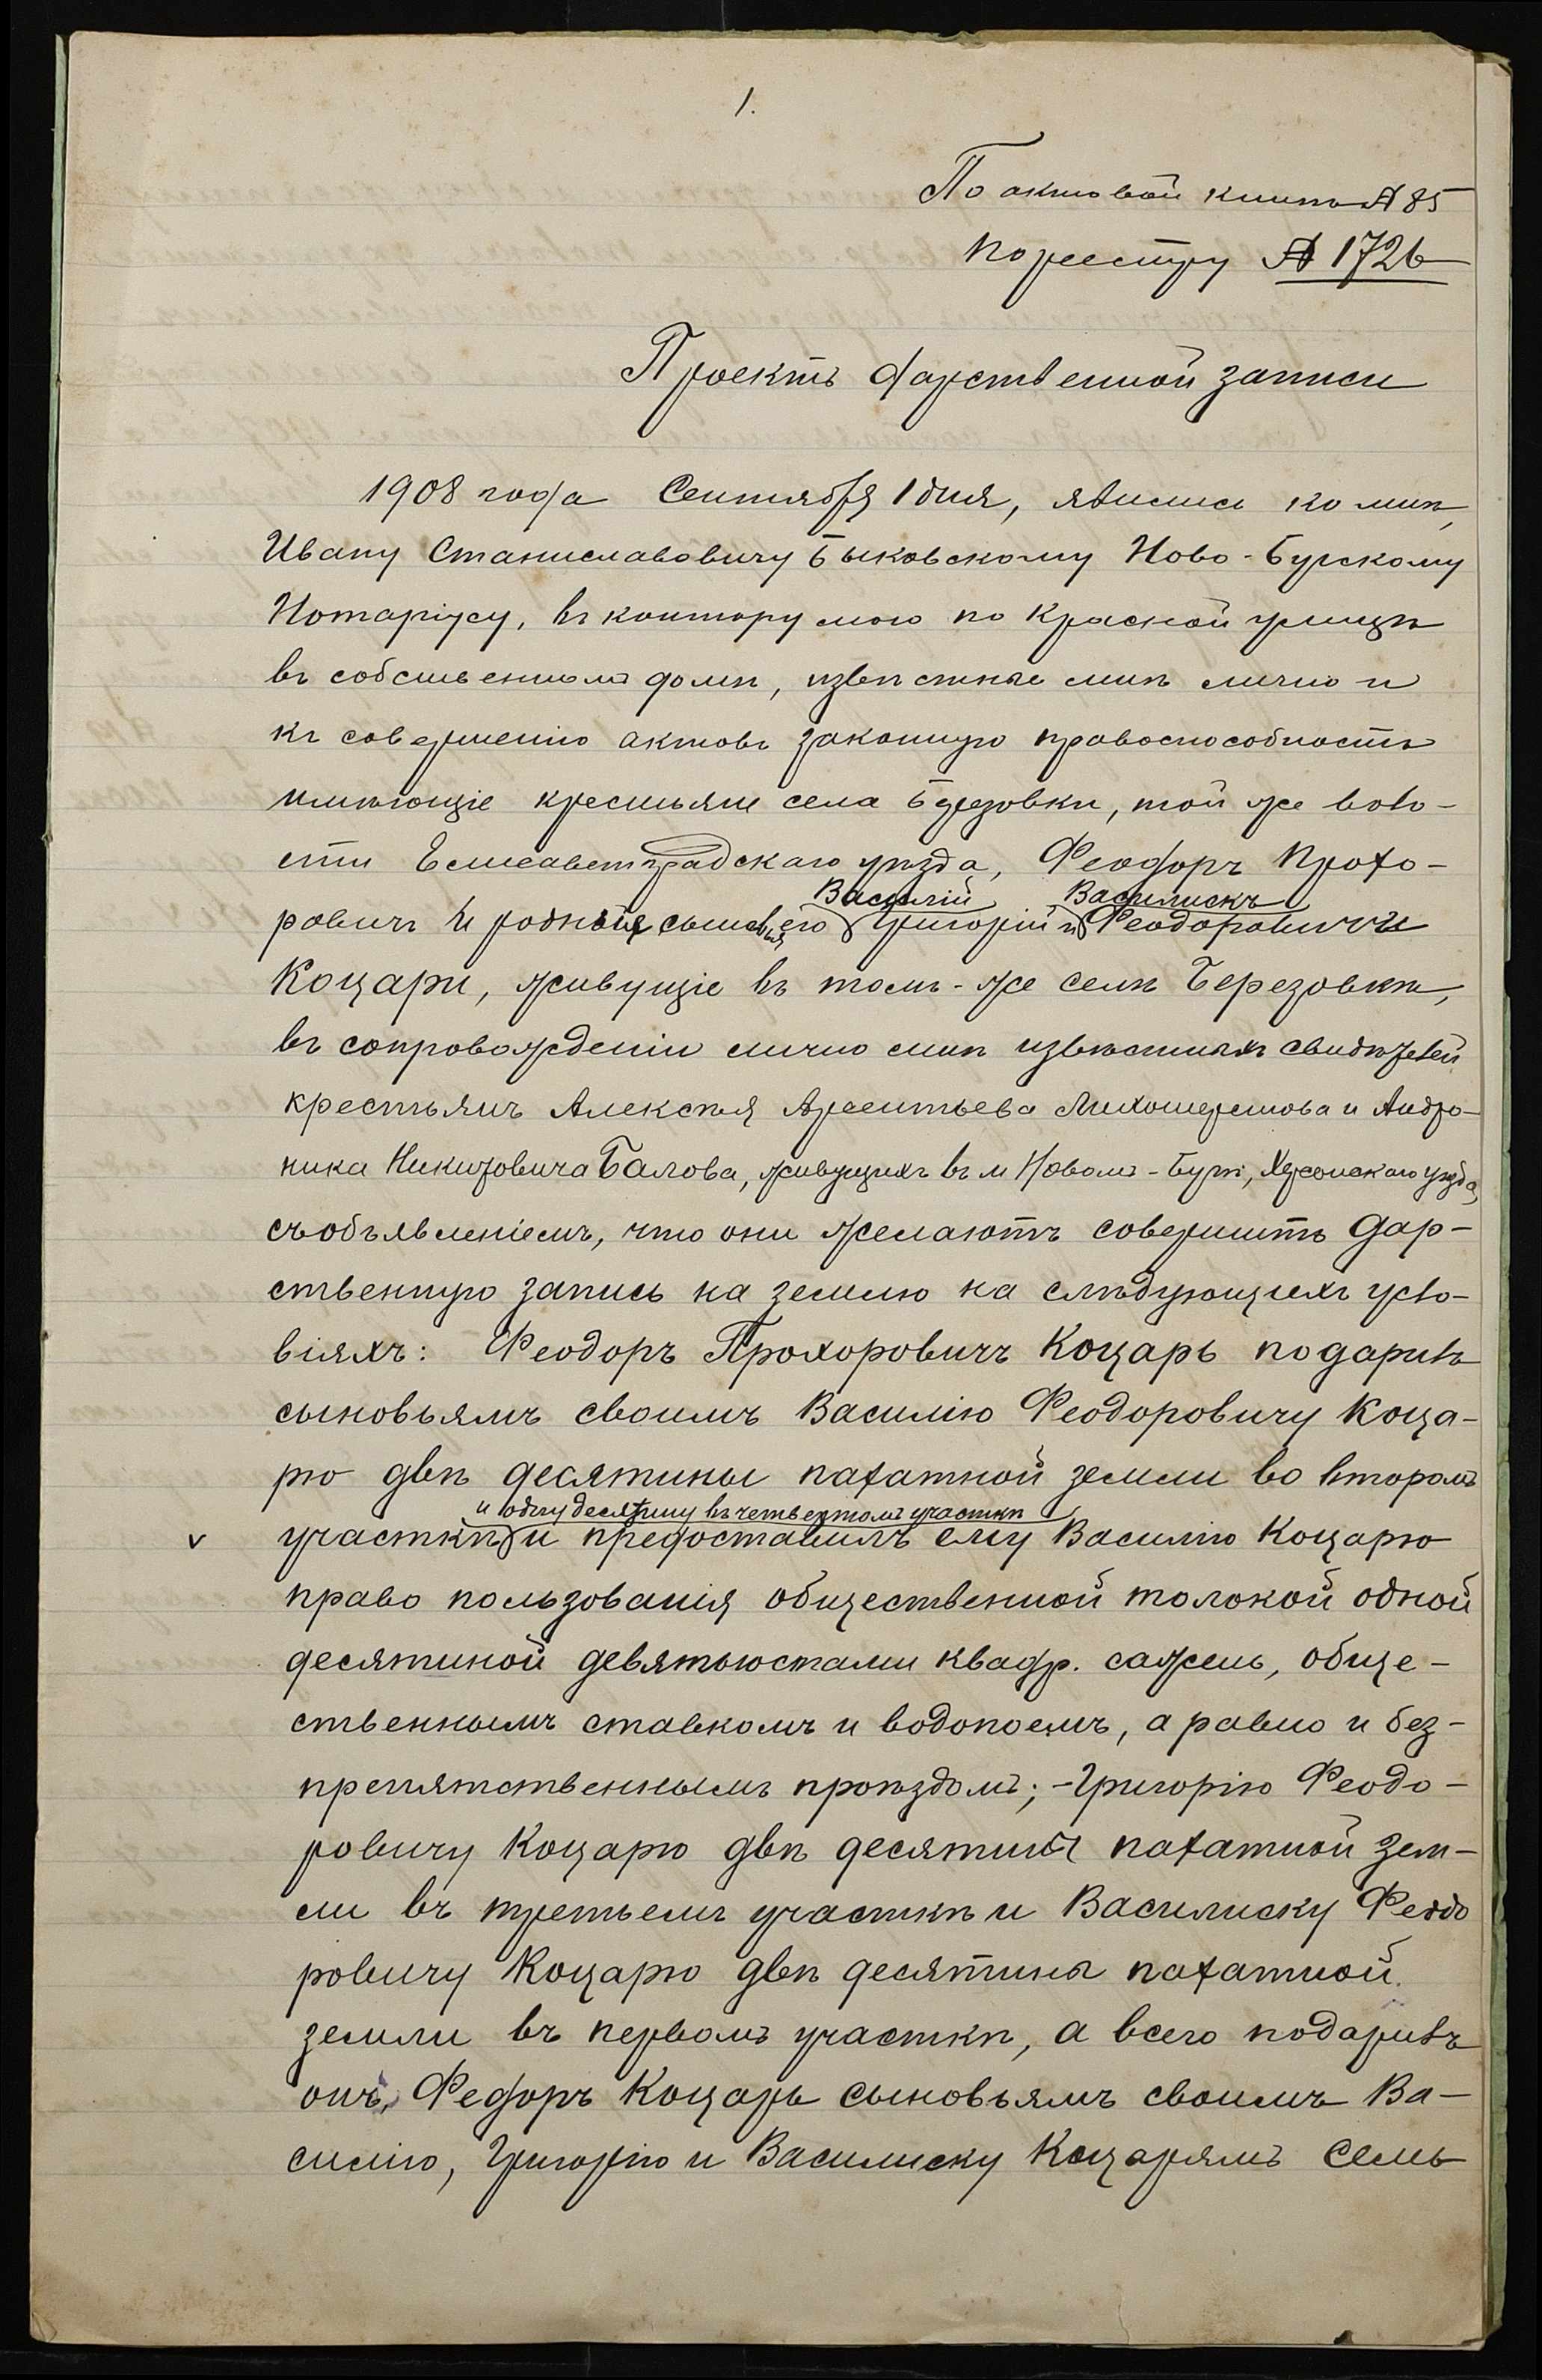 1.
По актовой книгѣ № 85
по реестру № 1726
Проектъ дарственной записи
1908 года Сентября 1 дня, явились ко мнѣ,
Ивану Станиславовичу Быковскому Ново-Бугскому
Нотаріусу, въ контору мою по Красной улицѣ
въ собственномъ домѣ, извѣстные мнѣ лично и
къ совершенію актовъ законную правоспособность
имѣющіе крестьяне села Березовки, той же воло-
сти Елисаветградскаго уѣзда, Феодоръ Прохо-
Василій Василискъ
ровичъ и родные сыновья его Григорій и Феодоровичи
Коцари, живущіе въ томъ-же селѣ Березовкѣ,
въ сопровожденіи лично мнѣ извѣстныхъ свидѣтелей
крестьянъ Алексѣя Арсентьева Лихошерстова и Андро-
ника Никитовича Балова, живущихъ въ м Новомъ-Бугѣ, Херсонскаго уѣзда,
съ объявленіемъ, что они желаютъ совершить дар-
ственную запись на землю на слѣдующихъ усло-
віяхъ: Феодоръ Прохоровичъ Коцарь подарилъ
сыновьямъ своимъ Василію Феодоровичу Коца-
рю двѣ десятины пахатной земли во второмъ
и одну десятину въ четвертомъ участкѣ
v участкѣ и предоставилъ ему Василію Коцарю
право пользованія общественной толокой одной
десятиной девятьюстами квадр. сажень, обще-
ственнымъ ставкомъ и водопоемъ, а равно и без-
препятственнымъ проѣздомъ; - Григорію Феодо-
ровичу Коцарю двѣ десятины пахатной зем-
ли въ третьемъ участкѣ и Василиску Феодо
ровичу Коцарю двѣ десятины пахатной
земли въ первомъ участкѣ, а всего подарилъ
онъ, Федоръ Коцарь сыновьямъ своимъ Ва-
силію, Григорію и Василиску Коцарямъ семь